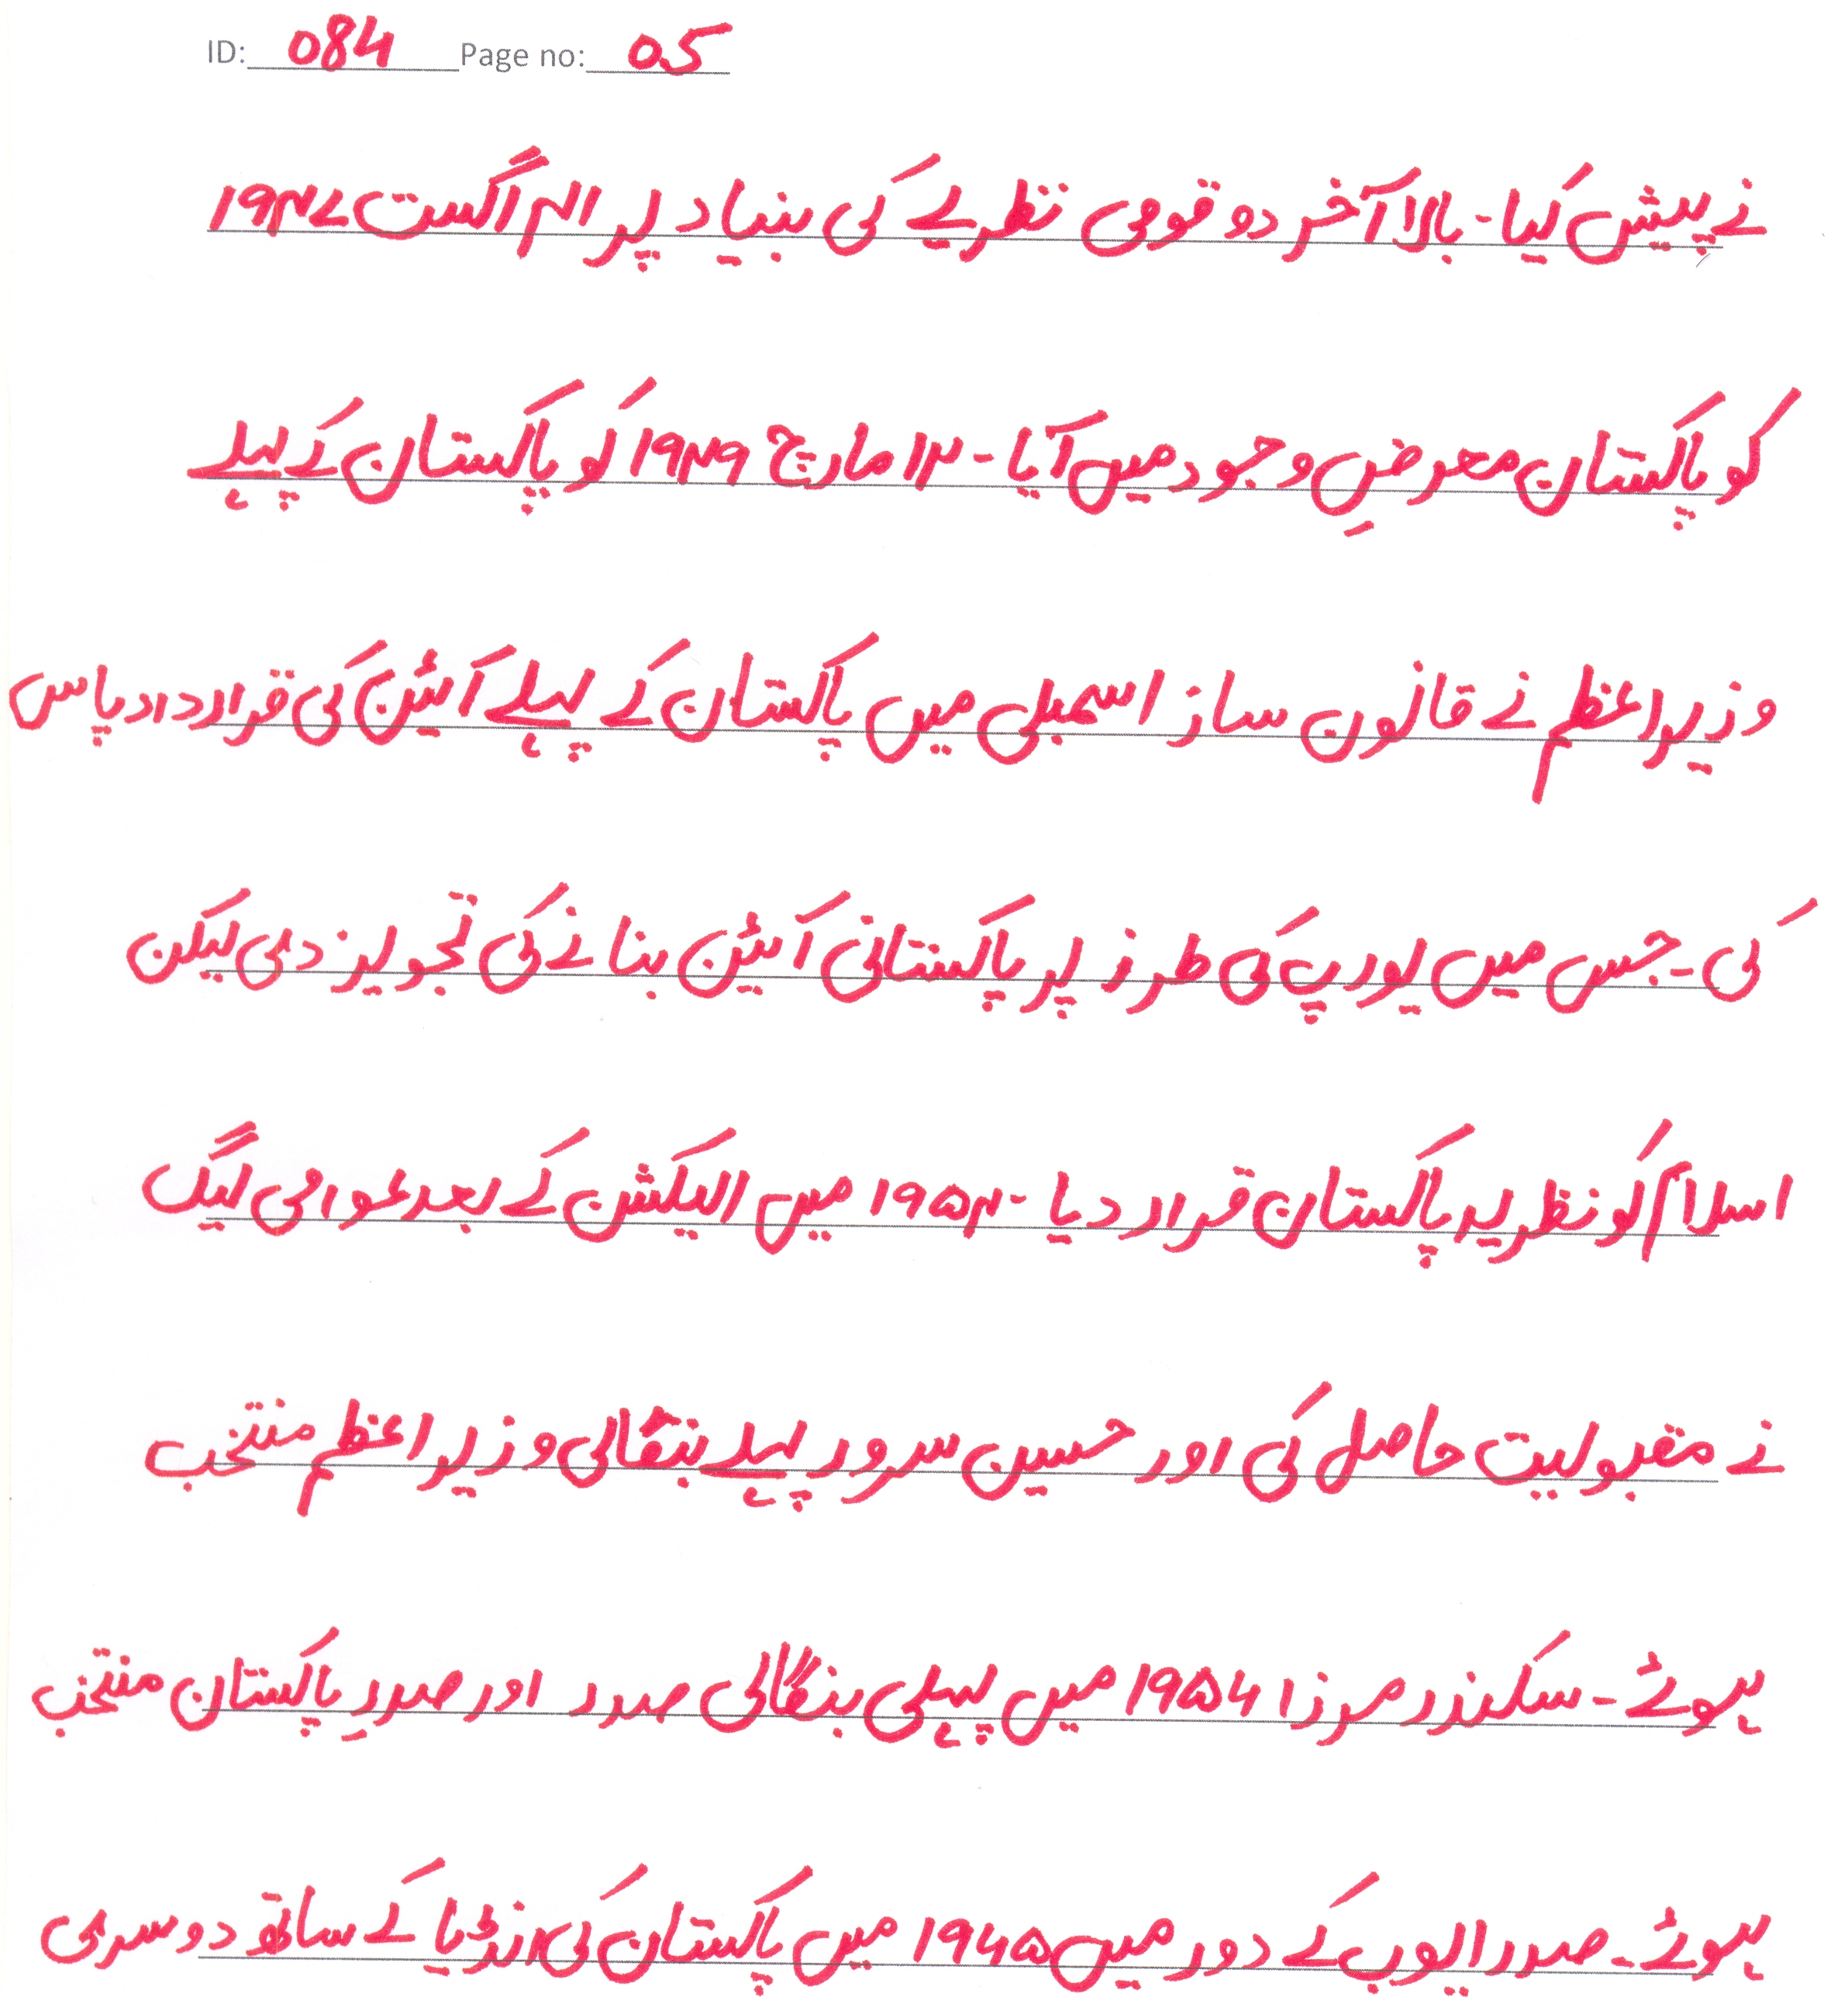 ID: 084 Page no: 05
نے پیش کیا۔ بالاآخر دو قومی نظریے کی بنیاد پر ۱۴ اگست ۱۹۴۷
کو پاکستان معرضِ وجود میں آیا۔ ۱۲ مارچ ۱۹۴۹ کو پاکستان کے پہلے
وزیراعظم نے قانون ساز اسمبلی میں پاکستان کے پہلے آئین کی قرارداد پاس
کی۔ جس میں یورپ کی طرز پر پاکستانی آئین بنانے کی تجویز دی لیکن
اسلام کو نظریہ پاکستان قرار دیا۔ ۱۹۵۴ میں الیکشن کے بعد عوامی لیگ
نے مقبولیت حاصل کی اور حسین سرور پہلے بنگالی وزیراعظم منتخب
ہوئے۔ سکندر مرزا ۱۹۵۶ میں پہلی بنگالی صدر اور صدرِ پاکستان منتخب
ہوئے۔ صدر ایوب کے دور میں ۱۹۶۵ میں پاکستان کی انڈیا کے ساتھ دوسری